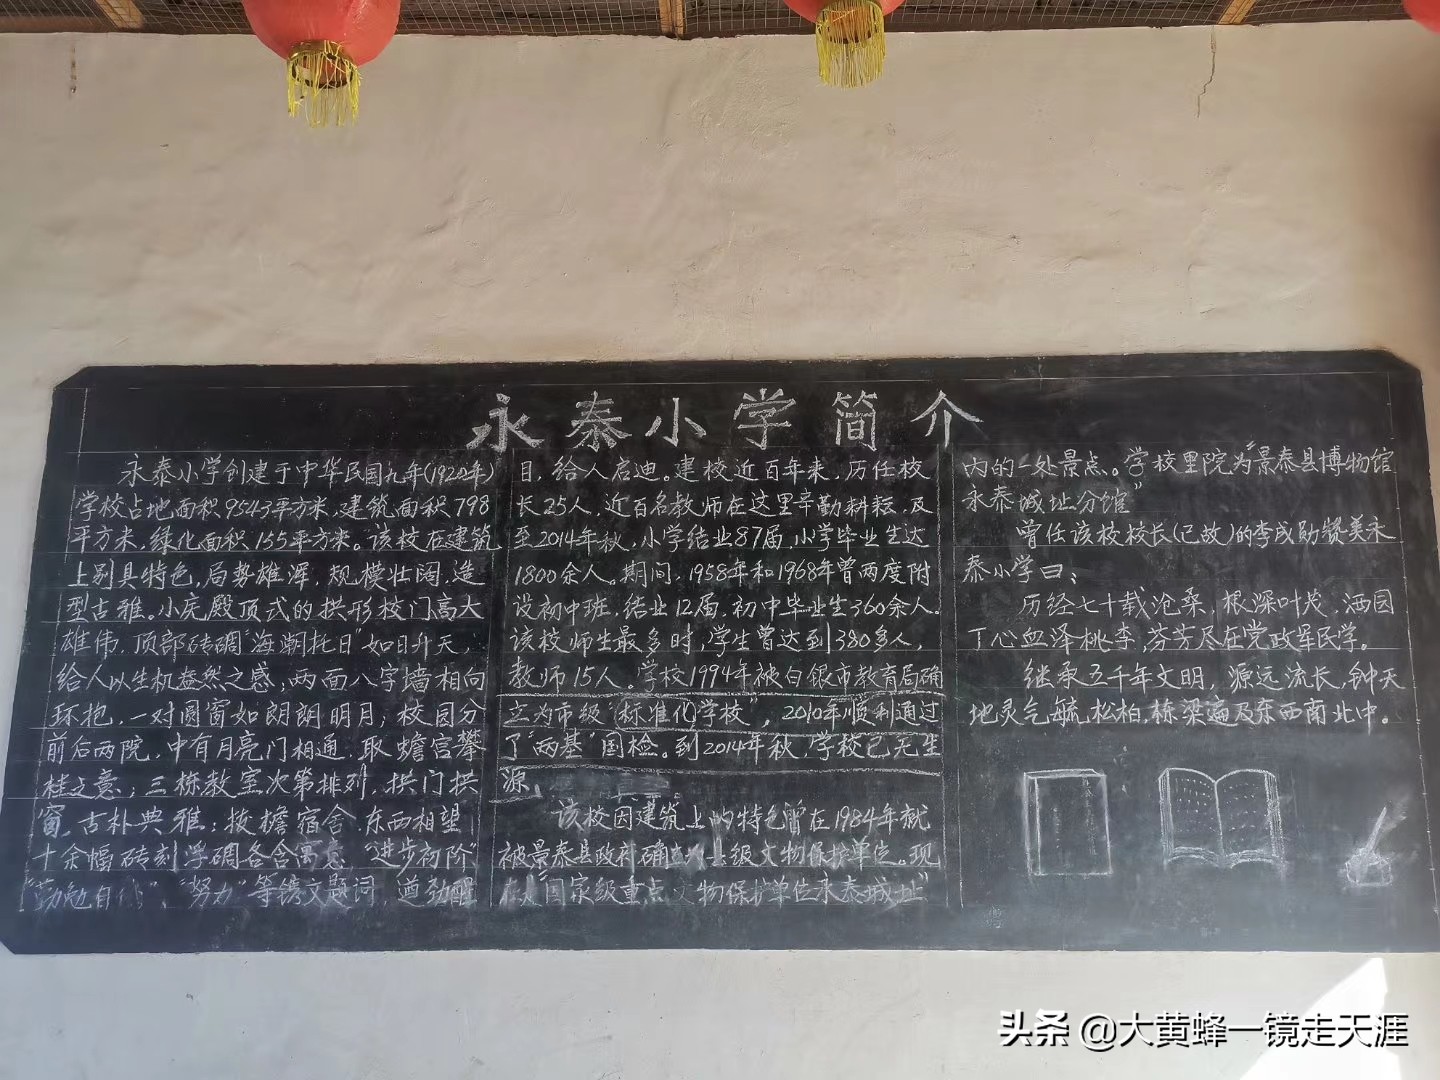 永泰小学简介
永泰小学创建于中华民国九年(1920年)
学校占地面积9543平方米,建筑面积798
平方米,绿化面积155平方米。该校在建筑
上别具特色,局势雄浑,规模壮阔,造
型古雅。小庑殿顶式的拱形校门高大
雄伟,顶部砖碉"海潮托日"如日升天,
给人以生机盎然之感;两面八字墙相向
环抱,一对圆窗如朗朗明月;校园分
前后两院,中有月亮门相通,取蟾宫攀
桂之意;三栋教室次第排列,拱门拱
窗,古朴典雅;拔檐宿舍,东西相望;
十余幅砖刻浮碉各含寓意"进步初阶"
"勤勉自","努力"等镌文题词,遒劲醒
目,给人启迪。建校近百年来,历任校
长25人,近百名教师在这里辛勤耕耘,及
至2014年秋,小学结业87届,小学毕业生达
1800余人。期间,1958年和1968年曾两度附
设初中班,结业12届,初中毕业生360余人。
该校师生最多时,学生曾达到380多人,
教师15人。学校1994年被白银市教育局确
立为市级"标准化学校",2010年顺利通过
了"两基"国检。到2014年秋,学校已无生
源。
该校因建筑上的特色曾在1984年就
被景泰县政府确立为县级文物保护单位。现
在是"国家级重点文物保护单位永泰城址"
内的一处景点。学校里院为"景泰县博物馆
永泰城址分馆"
曾任该校校长(已故)的李成勋赞美永
泰小学曰:
历经七十载沧桑,根深叶茂,洒园
丁心血泽桃李,芬芳尽在党政军民学。
继承五千年文明,源远流长,钟天
地灵气毓松柏,栋梁遍及东西南北中。
头条 @大黄蜂一镜走天涯